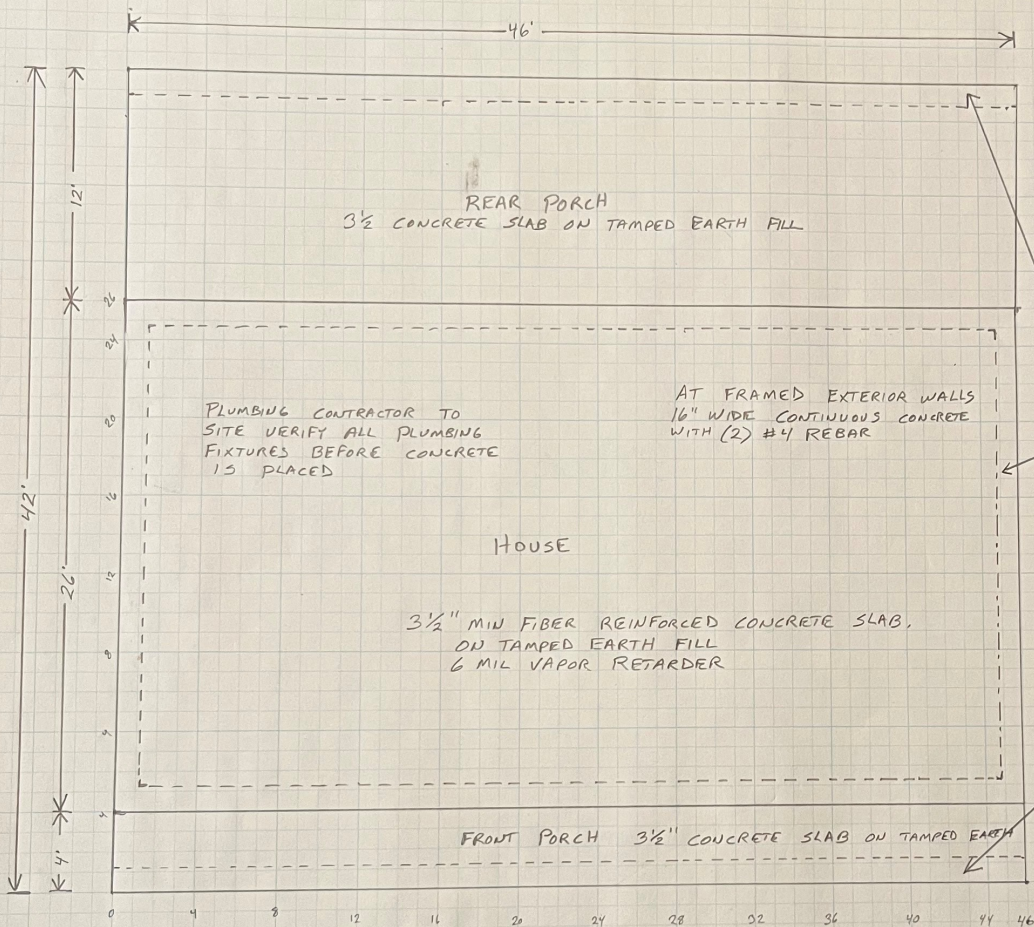 46'
12'
REAR PORCH
3½ CONCRETE SLAB ON TAMPED EARTH FILL
26
24
PLUMBING CONTRACTOR TO
SITE VERIFY ALL PLUMBING
FIXTURES BEFORE CONCRETE
IS PLACED
AT FRAMED EXTERIOR WALLS
16" WIDE CONTINUOUS CONCRETE
WITH (2) #4 REBAR
20
16
42'
HOUSE
12
26'
3½" MIN FIBER REINFORCED CONCRETE SLAB.
ON TAMPED EARTH FILL
6 MIL VAPOR RETARDER
8
4'
FRONT PORCH 3½" CONCRETE SLAB ON TAMPED EARTH
0 4 8 12 16 20 24 28 32 36 40 44 46